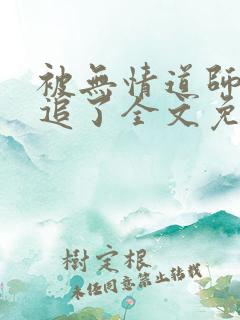 被無情道師
追了全文免
樹定根
未任同意禁止转载